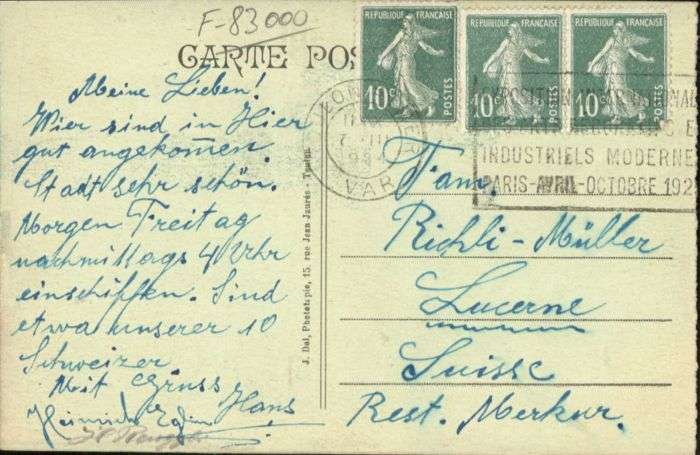 F-83000
CARTE POS
RÉPUBLIQUE FRANÇAISE
10c
POSTES
RÉPUBLIQUE FRANÇAISE
10c
POSTES
RÉPUBLIQUE FRANÇAISE
10c
POSTES
VAR
INDUSTRIELS MODERNE
PARIS-AVRIL-OCTOBRE 192
Meine Lieben!
Wier sind in Hier
gut angekommen.
Stadt sehr schön.
Morgen Freitag
nachmittags 4 Uhr
einschiffen. Sind
etwa unserer 10
Schweizer
Mit Gruss
Hans
Heinrich
J. Bal, Phototypie, 15, rue Jean Jaurès - Toulon
Fam.
Richli-Müller
Lucerne
Suisse
Rest. Merkur.